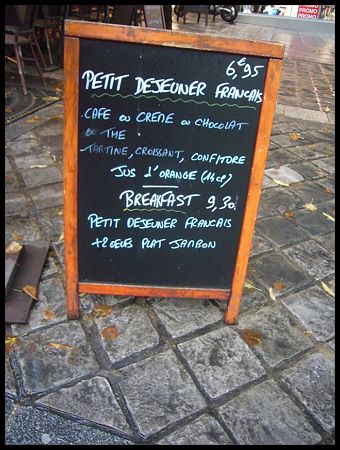 PROMO PROMO
PROMO PROMO
6,€95
PETIT DEJEUNER FRANCAIS
CAFE OU CREME OU CHOCOLAT
OU THE
TARTINE, CROISSANT, CONFITORE
JUS D'ORANGE (14cl)
BREAKFAST 9,30
PETIT DEJEUNER FRANCAIS
+2 OEUFS PLAT JAMBON